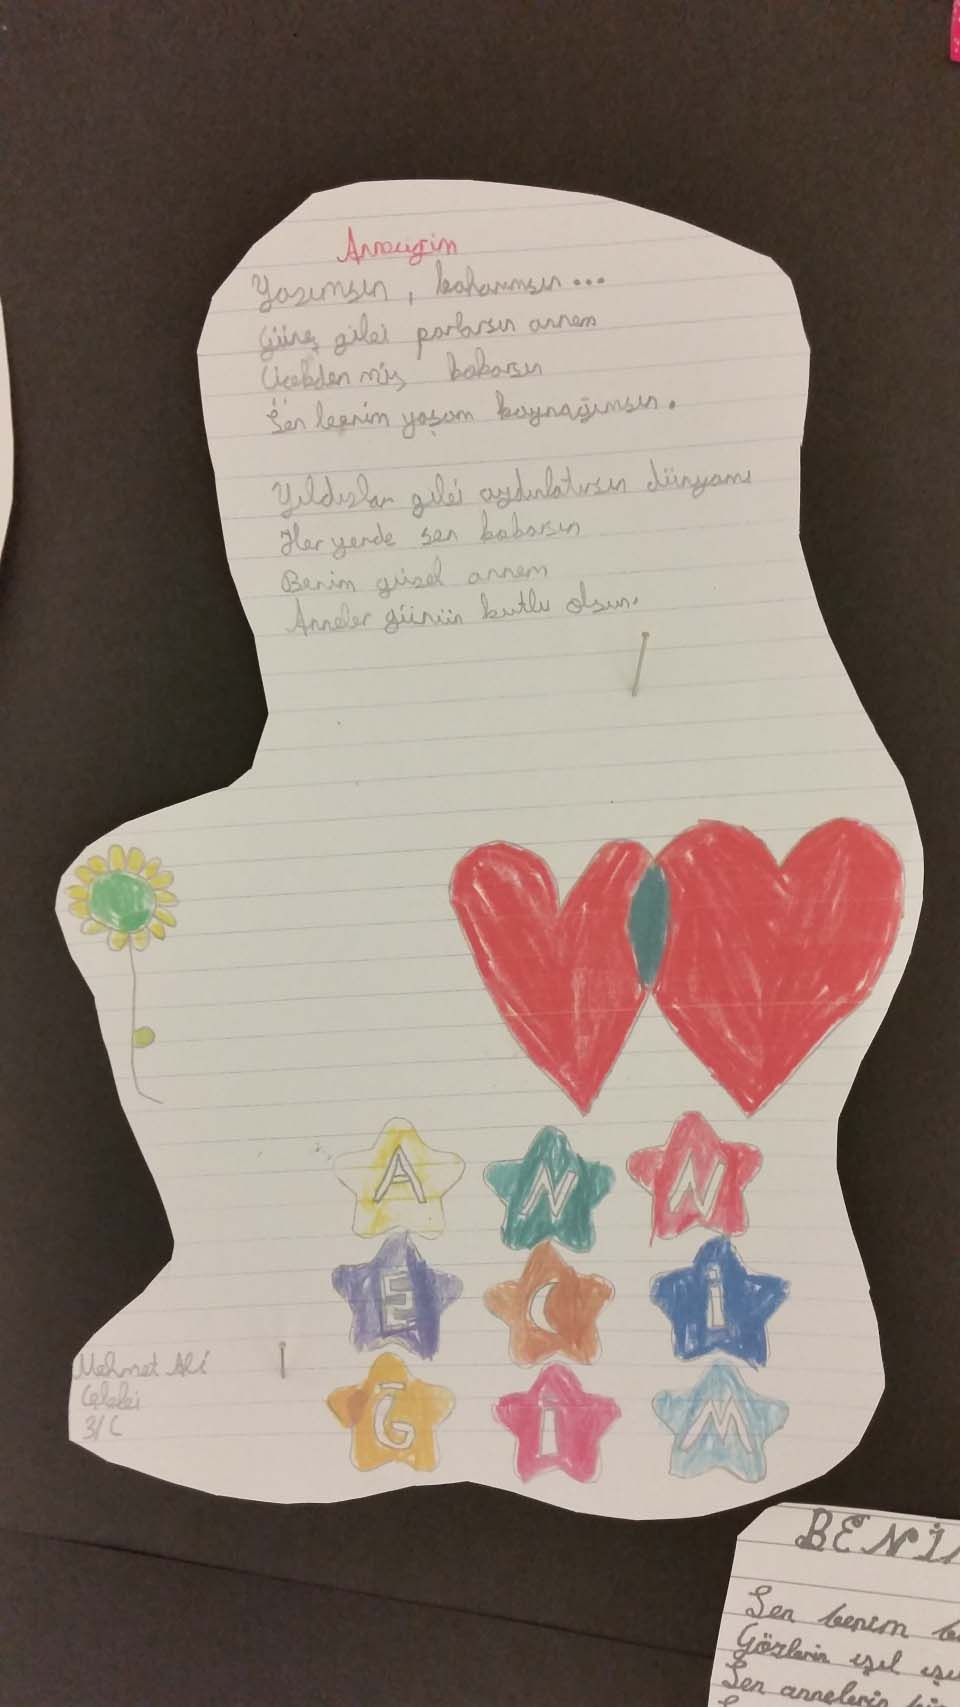 Anneciğim
Yazımsın, baharımsın...
Güneş gibi parlarsın annem
Çiçekden mis kokarsın
Sen benim yaşam kaynağımsın.
Yıldızlar gibi aydınlatırsın dünyamı
Her yerde sen kokarsın
Benim güzel annem
Anneler günün kutlu olsun.
A N N
E C İ
Ğ İ M
Mehmet Ali
Çelebi
3/C
BENİM
Sen benim
Gözlerin ışıl
Sen annelerin